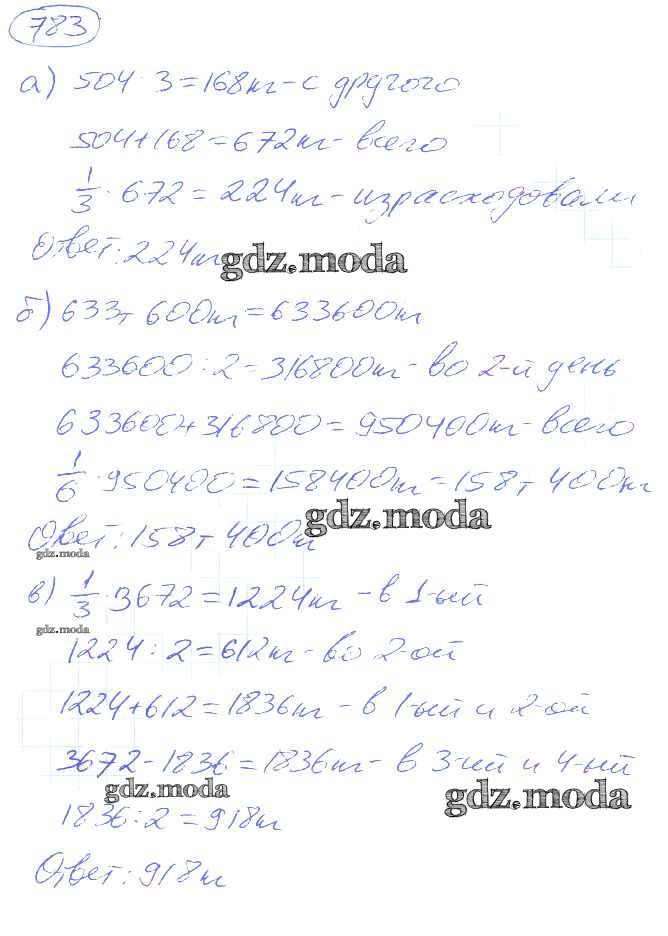 783
а) 504 : 3 = 168 кг - с другого
504 + 168 = 672 кг - всего
1/3 · 672 = 224 кг - израсходовали
Ответ: 224 кг
gdz.moda
б) 633 т 600 кг = 633600 кг
633600 : 2 = 316800 кг - во 2-й день
633600 + 316800 = 950400 кг - всего
1/6 · 950400 = 158400 кг = 158 т 400 кг
gdz.moda
Ответ: 158 т 400 кг
gdz.moda
в) 1/3 · 3672 = 1224 кг - в 1-ый
gdz.moda
1224 : 2 = 612 кг - во 2-ой
1224 + 612 = 1836 кг - в 1-ый и 2-ой
3672 - 1836 = 1836 кг - в 3-ий и 4-ый
gdz.moda
gdz.moda
1836 : 2 = 918 кг
Ответ: 918 кг